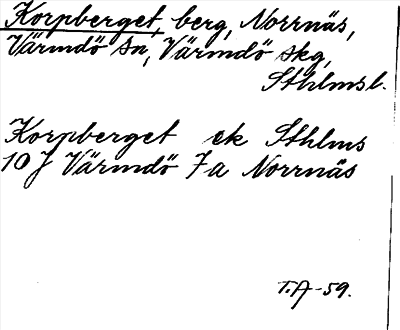 Korpberget, berg, Norrnäs,
Värmdö sn, Värmdö skg,
Sthlms l.
Korpberget ek Sthlms
10 J Värmdö 7 a Norrnäs
T.A-59.